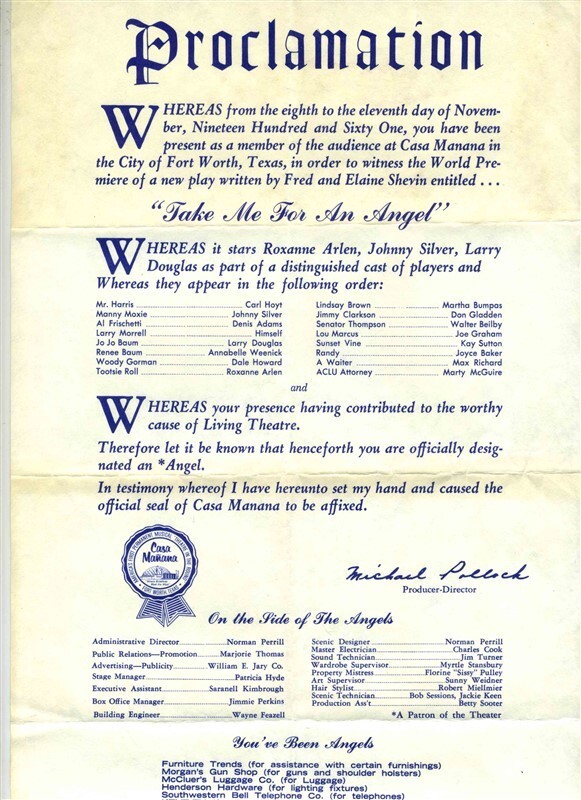 Proclamation
WHEREAS from the eighth to the eleventh day of Novem-
ber, Nineteen Hundred and Sixty One, you have been
present as a member of the audience at Casa Manana in
the City of Fort Worth, Texas, in order to witness the World Pre-
miere of a new play written by Fred and Elaine Shevin entitled . . .
"Take Me For An Angel"
WHEREAS it stars Roxanne Arlen, Johnny Silver, Larry
Douglas as part of a distinguished cast of players and
Whereas they appear in the following order:
Mr. Harris Carl Hoyt
Manny Moxie Johnny Silver
Al Frischetti Denis Adams
Larry Morrell Himself
Jo Jo Baum Larry Douglas
Renee Baum Annabelle Weenick
Woody Gorman Dale Howard
Tootsie Roll Roxanne Arlen
Lindsay Brown Martha Bumpas
Jimmy Clarkson Don Gladden
Senator Thompson Walter Beilby
Lou Marcus Joe Graham
Sunset Vine Kay Sutton
Randy Joyce Baker
A Waiter Max Richard
ACLU Attorney Marty McGuire
and
WHEREAS your presence having contributed to the worthy
cause of Living Theatre.
Therefore let it be known that henceforth you are officially desig-
nated an *Angel.
In testimony whereof I have hereunto set my hand and caused the
official seal of Casa Manana to be affixed.
Casa
Mañana
FORT WORTH, TEXAS
Michael Pollock
Producer-Director
On the Side of The Angels
Administrative Director Norman Perrill
Public Relations—Promotion Marjorie Thomas
Advertising—Publicity William E. Jary Co.
Stage Manager Patricia Hyde
Executive Assistant Saranell Kimbrough
Box Office Manager Jimmie Perkins
Building Engineer Wayne Feazell
Scenic Designer Norman Perrill
Master Electrician Charles Cook
Sound Technician Jim Turner
Wardrobe Supervisor Myrtle Stansbury
Property Mistress Florine "Sissy" Pulley
Art Supervisor Sunny Weidner
Hair Stylist Robert Miellmier
Scenic Technician Bob Sessions, Jackie Keen
Production Ass't Betty Sooter
*A Patron of the Theater
You've Been Angels
Furniture Trends (for assistance with certain furnishings)
Morgan's Gun Shop (for guns and shoulder holsters)
McCluer's Luggage Co. (for Luggage)
Henderson Hardware (for lighting fixtures)
Southwestern Bell Telephone Co. (for telephones)